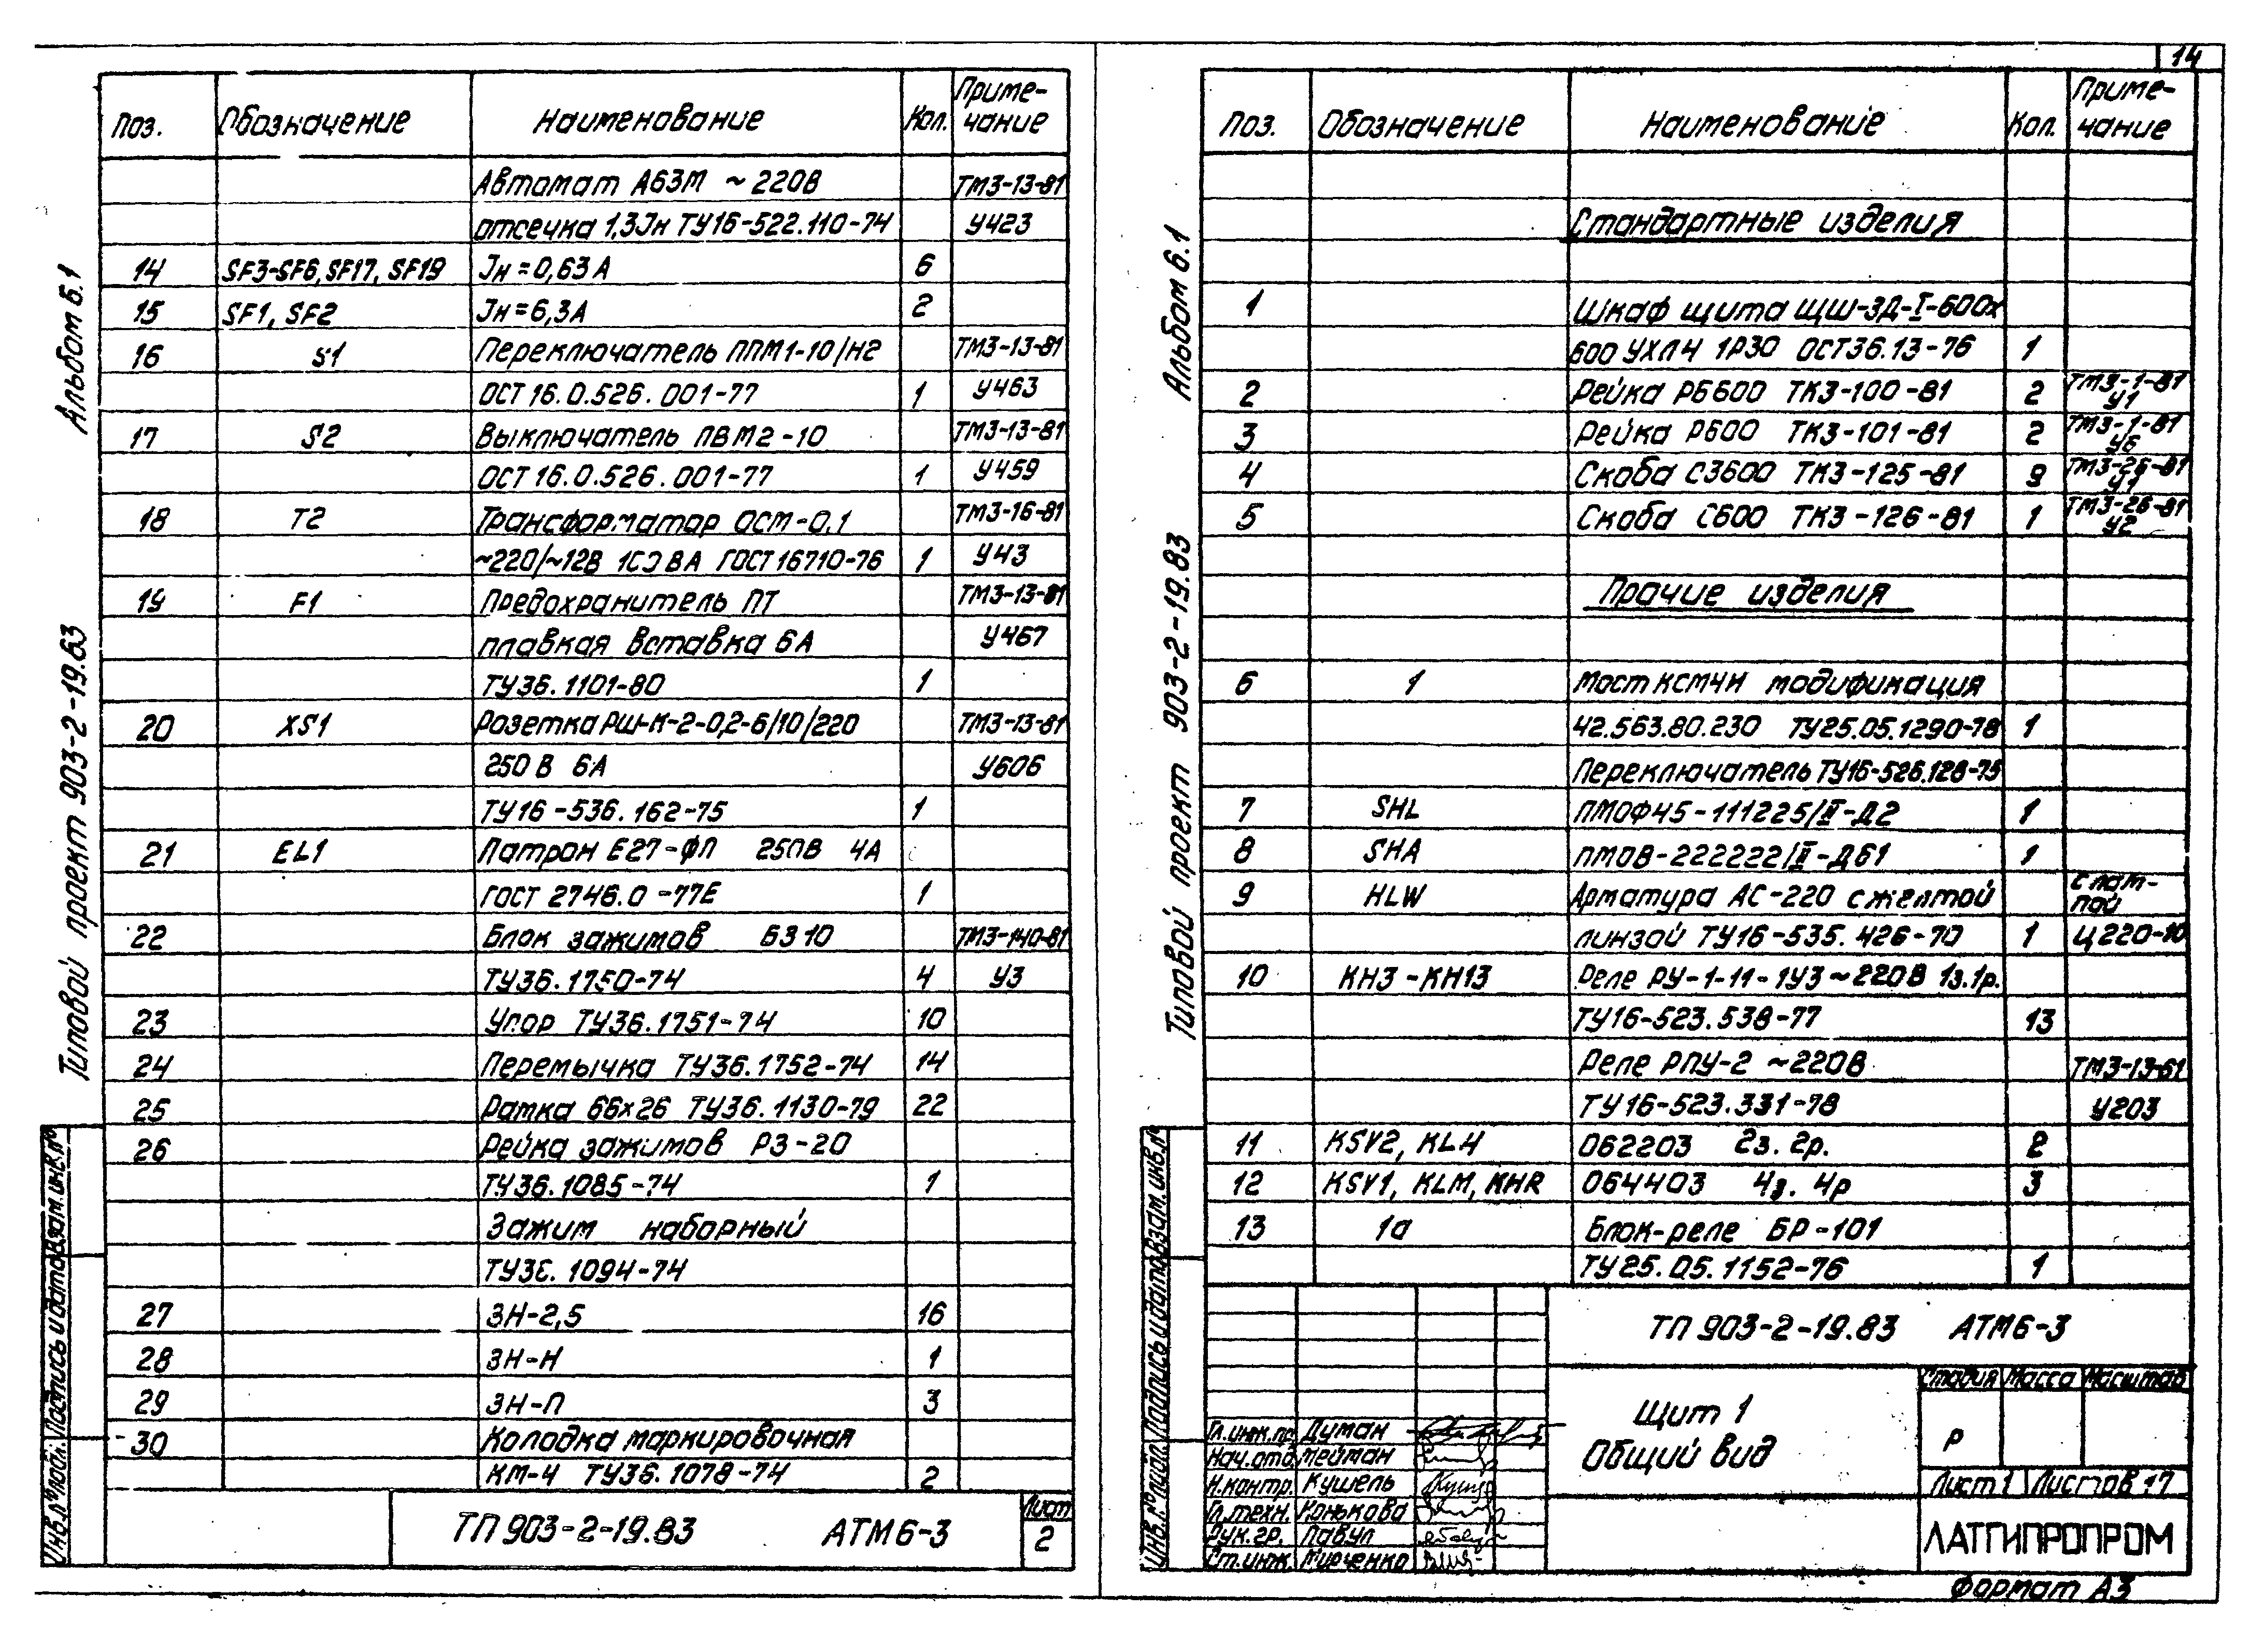 14
Альбом 6.1
Типовой проект 903-2-19.83
Поз. Обозначение Наименование Кол. Приме-
чание
Автомат А63М ~220В ТМ3-13-81
отсечка 1,3Jн ТУ16-522.110-74 У423
14 SF3-SF6, SF17, SF19 Jн=0,63А 6
15 SF1, SF2 Jн=6,3А 2
16 S1 Переключатель ППМ1-10/Н2 ТМ3-13-81
ОСТ 16.0.526.001-77 1 У463
17 S2 Выключатель ПВМ2-10 ТМ3-13-81
ОСТ 16.0.526.001-77 1 У459
18 Т2 Трансформатор ОСМ-0,1 ТМ3-16-81
~220/~12В 100ВА ГОСТ 16710-76 1 У43
19 F1 Предохранитель ПТ ТМ3-13-81
плавкая вставка 6А У467
ТУ36.1101-80 1
20 XS1 Розетка РШ-К-2-0,2-6/10/220 ТМ3-13-81
250В 6А У606
ТУ16-536.162-75 1
21 EL1 Патрон Е27-ФП 250В 4А
ГОСТ 2746.0-77Е 1
22 Блок зажимов БЗ10 ТМ3-140-81
ТУ36.1750-74 4 У3
23 Упор ТУ36.1751-74 10
24 Перемычка ТУ36.1752-74 14
25 Рамка 66х26 ТУ36.1130-79 22
26 Рейка зажимов РЗ-20
ТУ36.1085-74 1
Зажим наборный
ТУ36.1094-74
27 ЗН-2,5 16
28 ЗН-Н 1
29 ЗН-П 3
30 Колодка маркировочная
КМ-4 ТУ36.1078-74 2
ТП 903-2-19.83 АТМ6-3 Лист
2
Инв.№подл. Подпись и дата Взам.инв.№
Альбом 6.1
Типовой проект 903-2-19.83
Поз. Обозначение Наименование Кол. Приме-
чание
Стандартные изделия
1 Шкаф щита ЩШ-ЗД-I-600х
600 УХЛ4 1Р30 ОСТ36.13-76 1
2 Рейка РБ600 ТК3-100-81 2 ТМ3-1-81
У1
3 Рейка Р600 ТК3-101-81 2 ТМ3-1-81
У6
4 Скоба С3600 ТК3-125-81 9 ТМ3-26-81
У1
5 Скоба С600 ТК3-126-81 1 ТМ3-26-81
У2
Прочие изделия
6 1 Мост КСМ4И модификация
42.563.80.230 ТУ25.05.1290-78 1
Переключатель ТУ16-526.128-75
7 SHL ПМОФ45-111225/II-Д2 1
8 SHA ПМОВ-222222/II-Д61 1
9 HLW Арматура АС-220 с желтой с лам-
пой
линзой ТУ16-535.426-70 1 Ц220-10
10 КН3-КН13 Реле РУ-1-11-1У3 ~220В 1з.1р.
ТУ16-523.538-77 13
Реле РПУ-2 ~220В ТМ3-13-81
ТУ16-523.331-78 У203
11 KSV2, KL4 062203 2з. 2р. 2
12 KSV1, KLM, KHR 064403 4з. 4р 3
13 1а Блок-реле БР-101
ТУ25.05.1152-76 1
ТП 903-2-19.83 АТМ6-3
Щит 1
Общий вид
Стадия Масса Масштаб
Р
Лист 1 Листов 17
ЛАТГИПРОПРОМ
Гл.инж.пр. Думан
Нач.отд. Мейман
Н.контр. Кушель
Гл.техн. Конькова
Рук.гр. Павул
Ст.инж. Мирченко
Инв.№подл. Подпись и дата Взам.инв.№
Формат А3